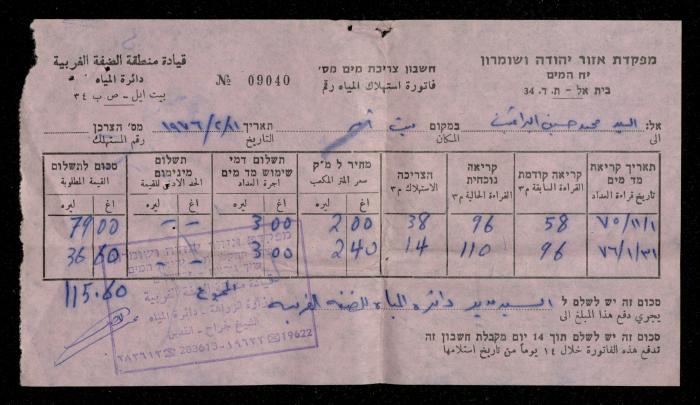 מפקדת אזור יהודה ושומרון
יח המים
בית אל - ת.ד. 34
חשבון צריכת מים מס'
فاتورة استهلاك المياه رقم
№ 09040
قيادة منطقة الضفة الغربية
دائرة المياه
بيت ايل - ص ب ٣٤
אל: السيد محمد حسين
الى
במקום بيت
المكان
תאריך ١٩٧٦/٢/١١
التاريخ
מס' הצרכן
رقم المستهلك
תאריך קריאת מד מים
تاريخ قراءة العداد
קריאה קודמת
القراءة السابقة م٣
קריאה נוכחית
القراءة الحالية م٣
הצריכה
الاستهلاك م٣
מחיר ל מ"ק
سعر المتر المكعب
תשלום דמי שימוש מד מים
اجرة العداد
תשלום מינימום
الحد الادنى للقيمة
סכום לתשלום
القيمة المطلوبة
اغ ليره اغ ليره اغ ليره اغ ليره
٧٥/١١/١ 58 96 38 2 00 3 00 - - 79 00
٧٦/١/٣١ 96 110 14 2 40 3 00 36 60
المجموع 115.60
סכום זה יש לשלם ל السيد مدير دائرة المياه الضفة الغربية
يجري دفع هذا المبلغ الى
סכום זה יש לשלם תוך 14 יום מקבלת חשבון זה
تدفع هذه الفاتورة خلال ١٤ يوماً من تاريخ استلامها
מפקדת אזור יהודה ושומרון
المياه
الشيخ جراح - القدس
19622 203613 - ١٩٦٢٢